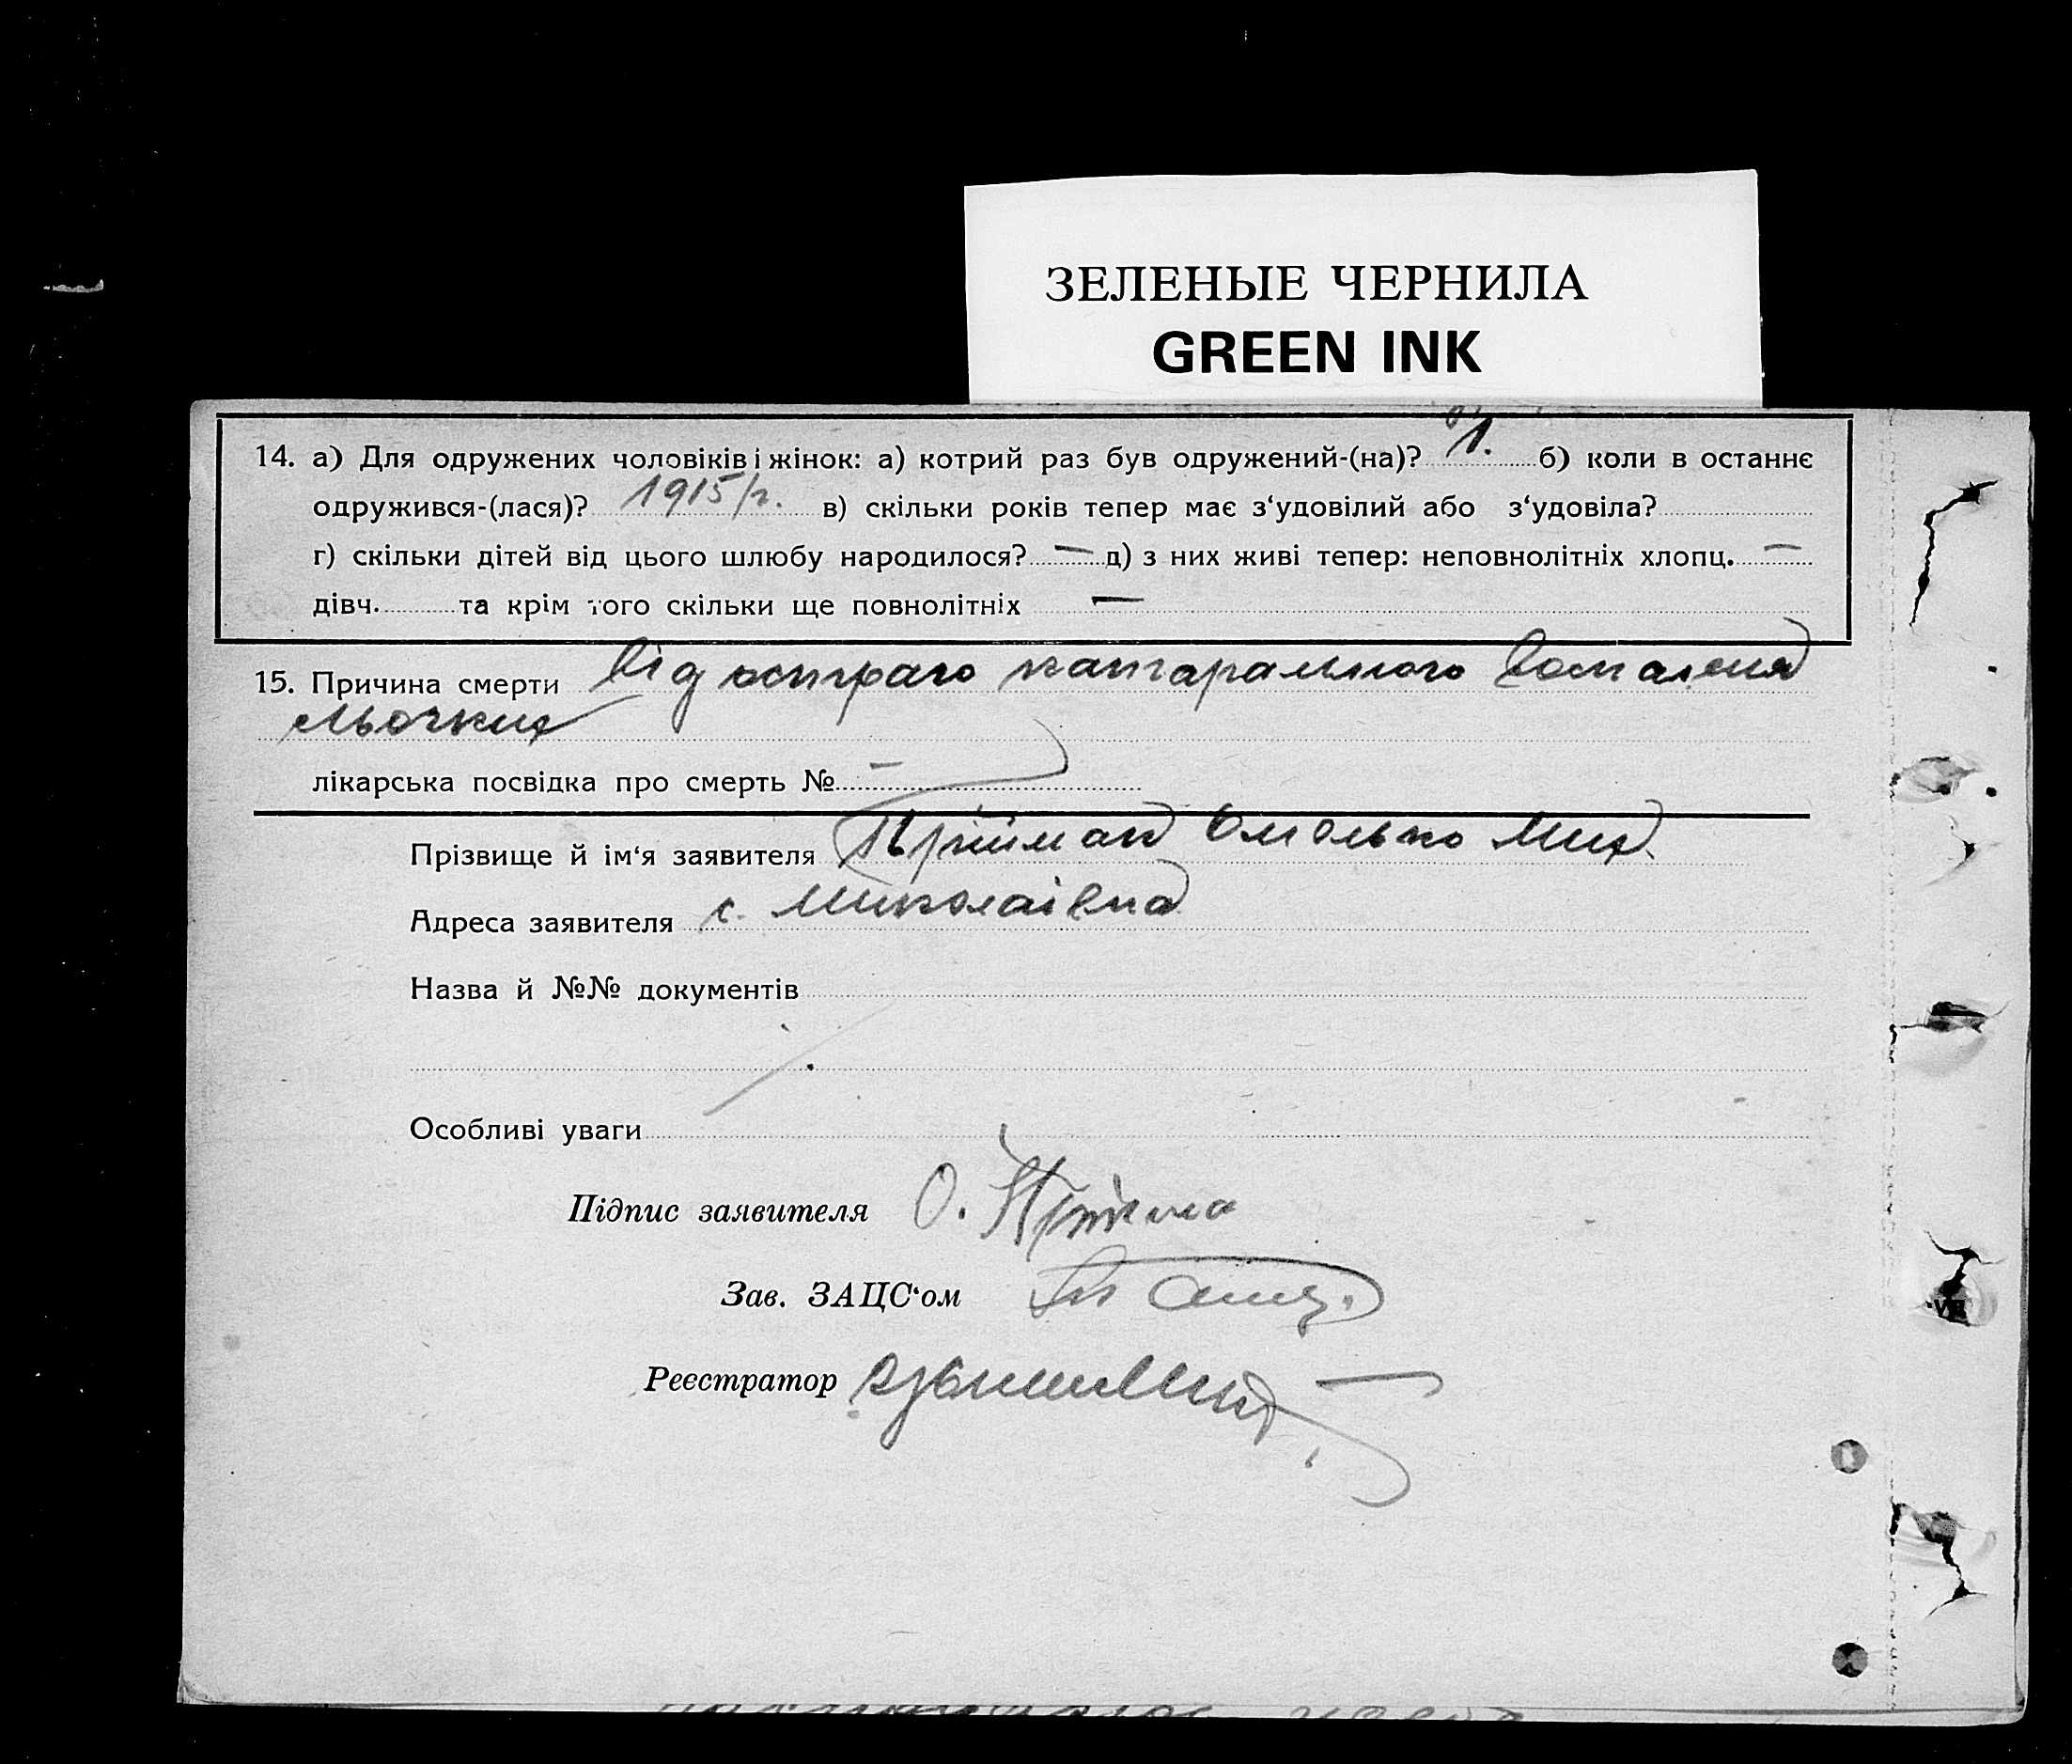 ЗЕЛЕНЫЕ ЧЕРНИЛА
GREEN INK
14. а) Для одружених чоловіків і жінок: а) котрий раз був одружений-(на)? 1. б) коли в останнє
одружився-(лася)? 1915/г. в) скільки років тепер має з‘удовілий або з‘удовіла?
г) скільки дітей від цього шлюбу народилося? — д) з них живі тепер: неповнолітніх хлопц. —
дівч. та крім того скільки ще повнолітніх —
15. Причина смерти від острого катарального
лікарська посвідка про смерть № —
Прізвище й ім‘я заявителя Мих.
Адреса заявителя с. Миколаівка
Назва й №№ документів
Особливі уваги
Підпис заявителя О.
Зав. ЗАЦС‘ом
Реєстратор